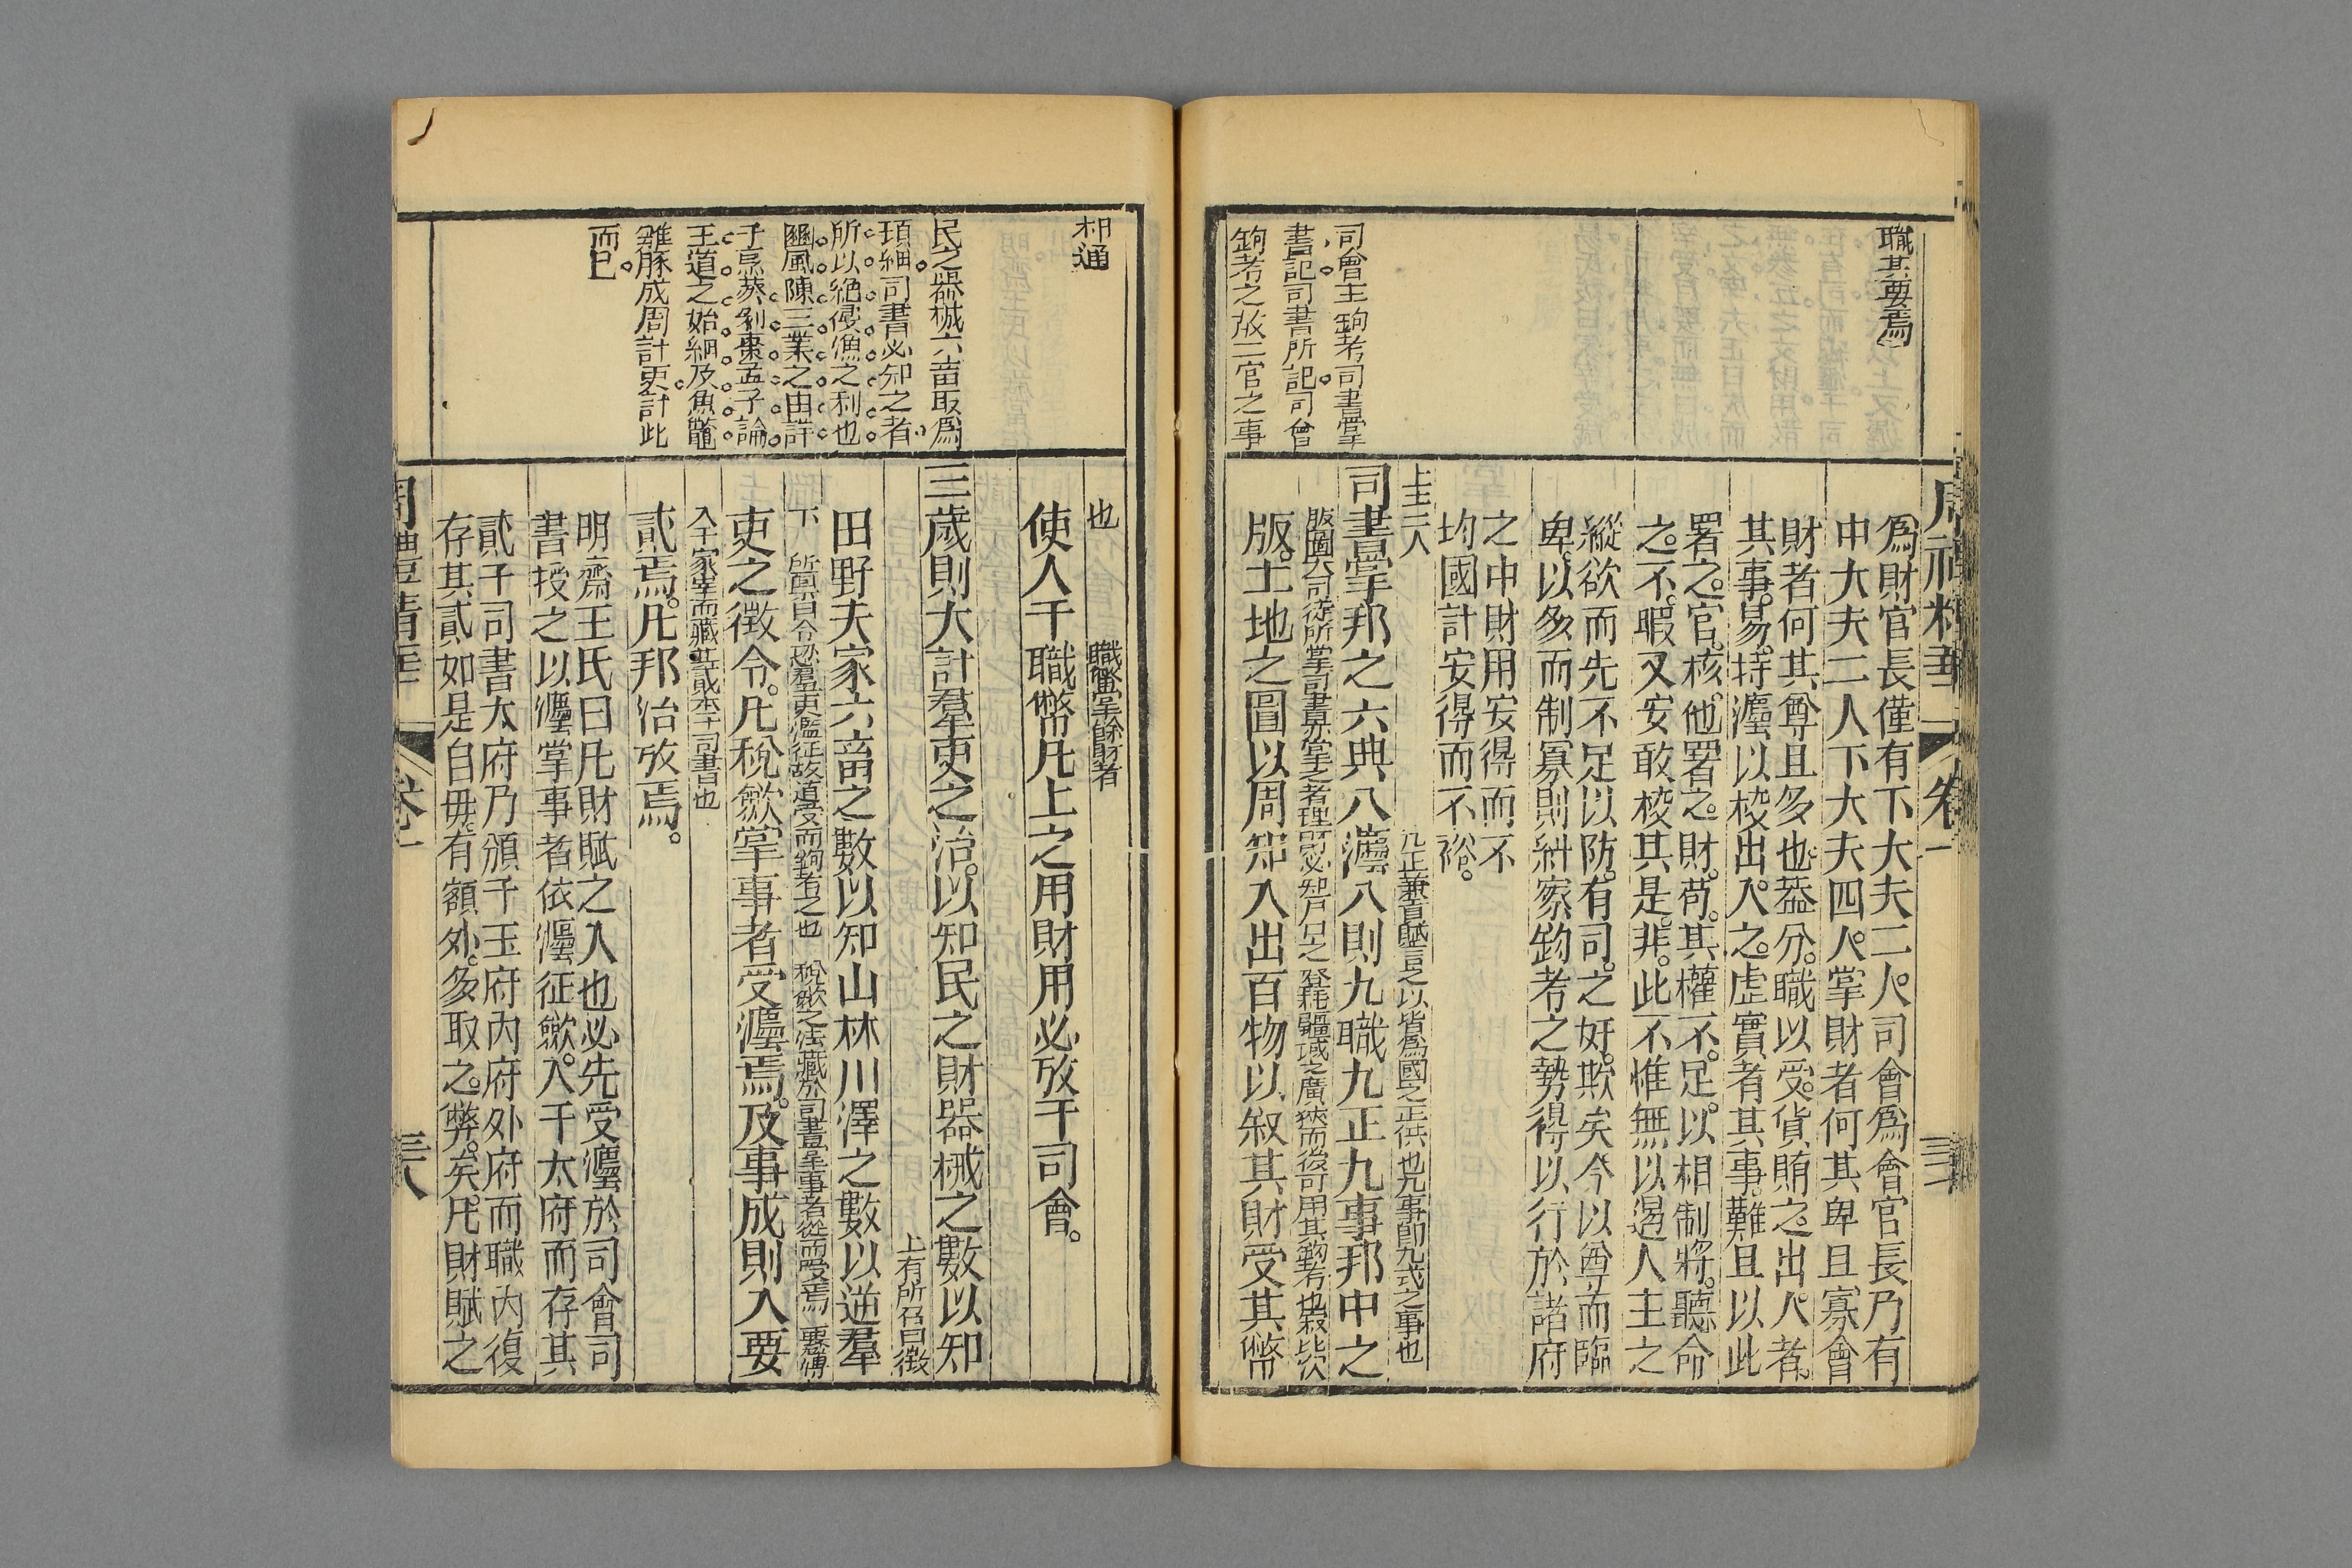 周禮精華
卷一
職其要焉
司會主鉤考司書掌
書記司書所記司會
鉤考之故二官之事
為財官長僅有下大夫二人司會為會官長乃有
中大夫二人下大夫四人掌財者何其卑且寡會
財者何其尊且多也蓋分職以受貨賄之出入者
其事易持灋以校出入之虛實者其事難且以此
署之官核他署之財苟其權不足以相制將聽命
之不暇又安敢校其是非此不惟無以遏人主之
縱欲而先不足以防有司之奸欺矣今以尊而臨
卑以多而制寡則糾察鉤考之勢得以行於諸府
之中財用安得而不
均國計安得而不裕
上士二人
九正兼言賦言之以皆為國之正供也九事即九式之事也
司書掌邦之六典八灋八則九職九正九事邦中之
版圖大司徒所掌司書
版土地之圖以周知入出百物以叙其財受其幣
相通
民之器械六畜取為
瑣細司書必知之者
所以絕侵漁之利也
豳風陳三業之由詳
于烹葵剝棗孟子論
王道之始細及魚鼈
雞豚成周計吏計此
而已
也
職幣掌餘財者
使入于職幣凡上之用財用必攷于司會
三歲則大計羣吏之治以知民之財器械之數以知
上有所召曰徵
田野夫家六畜之數以知山林川澤之數以逆羣
下
稅斂之法藏於司書掌事者從而受焉
吏之徵令凡稅斂掌事者受灋焉及事成則入要
司書也
貳焉凡邦治攷焉
明齋王氏曰凡財賦之入也必先受灋於司會司
書授之以灋掌事者依灋征斂入于太府而存其
貳于司書太府乃頒于玉府內府外府而職內復
存其貳如是自毋有額外多取之弊矣凡財賦之
卷一
三八